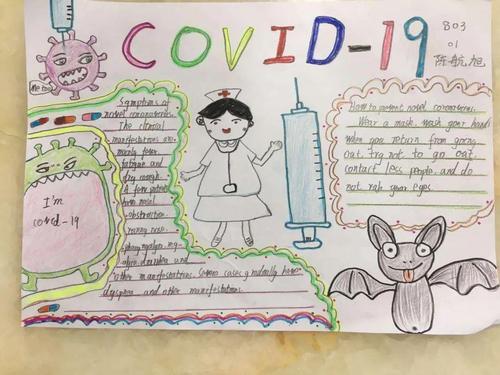 COVID-19
803
01
陈航旭
Me too
Symptoms of
novel coronavirus.
The clinical
manifestations are
mainly fever
fatigue and
dry cough.
A few patients
have nasal
obstruction
runny nose
and
other manifestations. Severe cases gradually have
dyspnea and other manifestations.
I'm
covid-19
How to prevent novel coronavirus.
Wear a mask, wash your hands
when you return from going
out, try not to go out,
contact less people, and do
not rub your eyes.